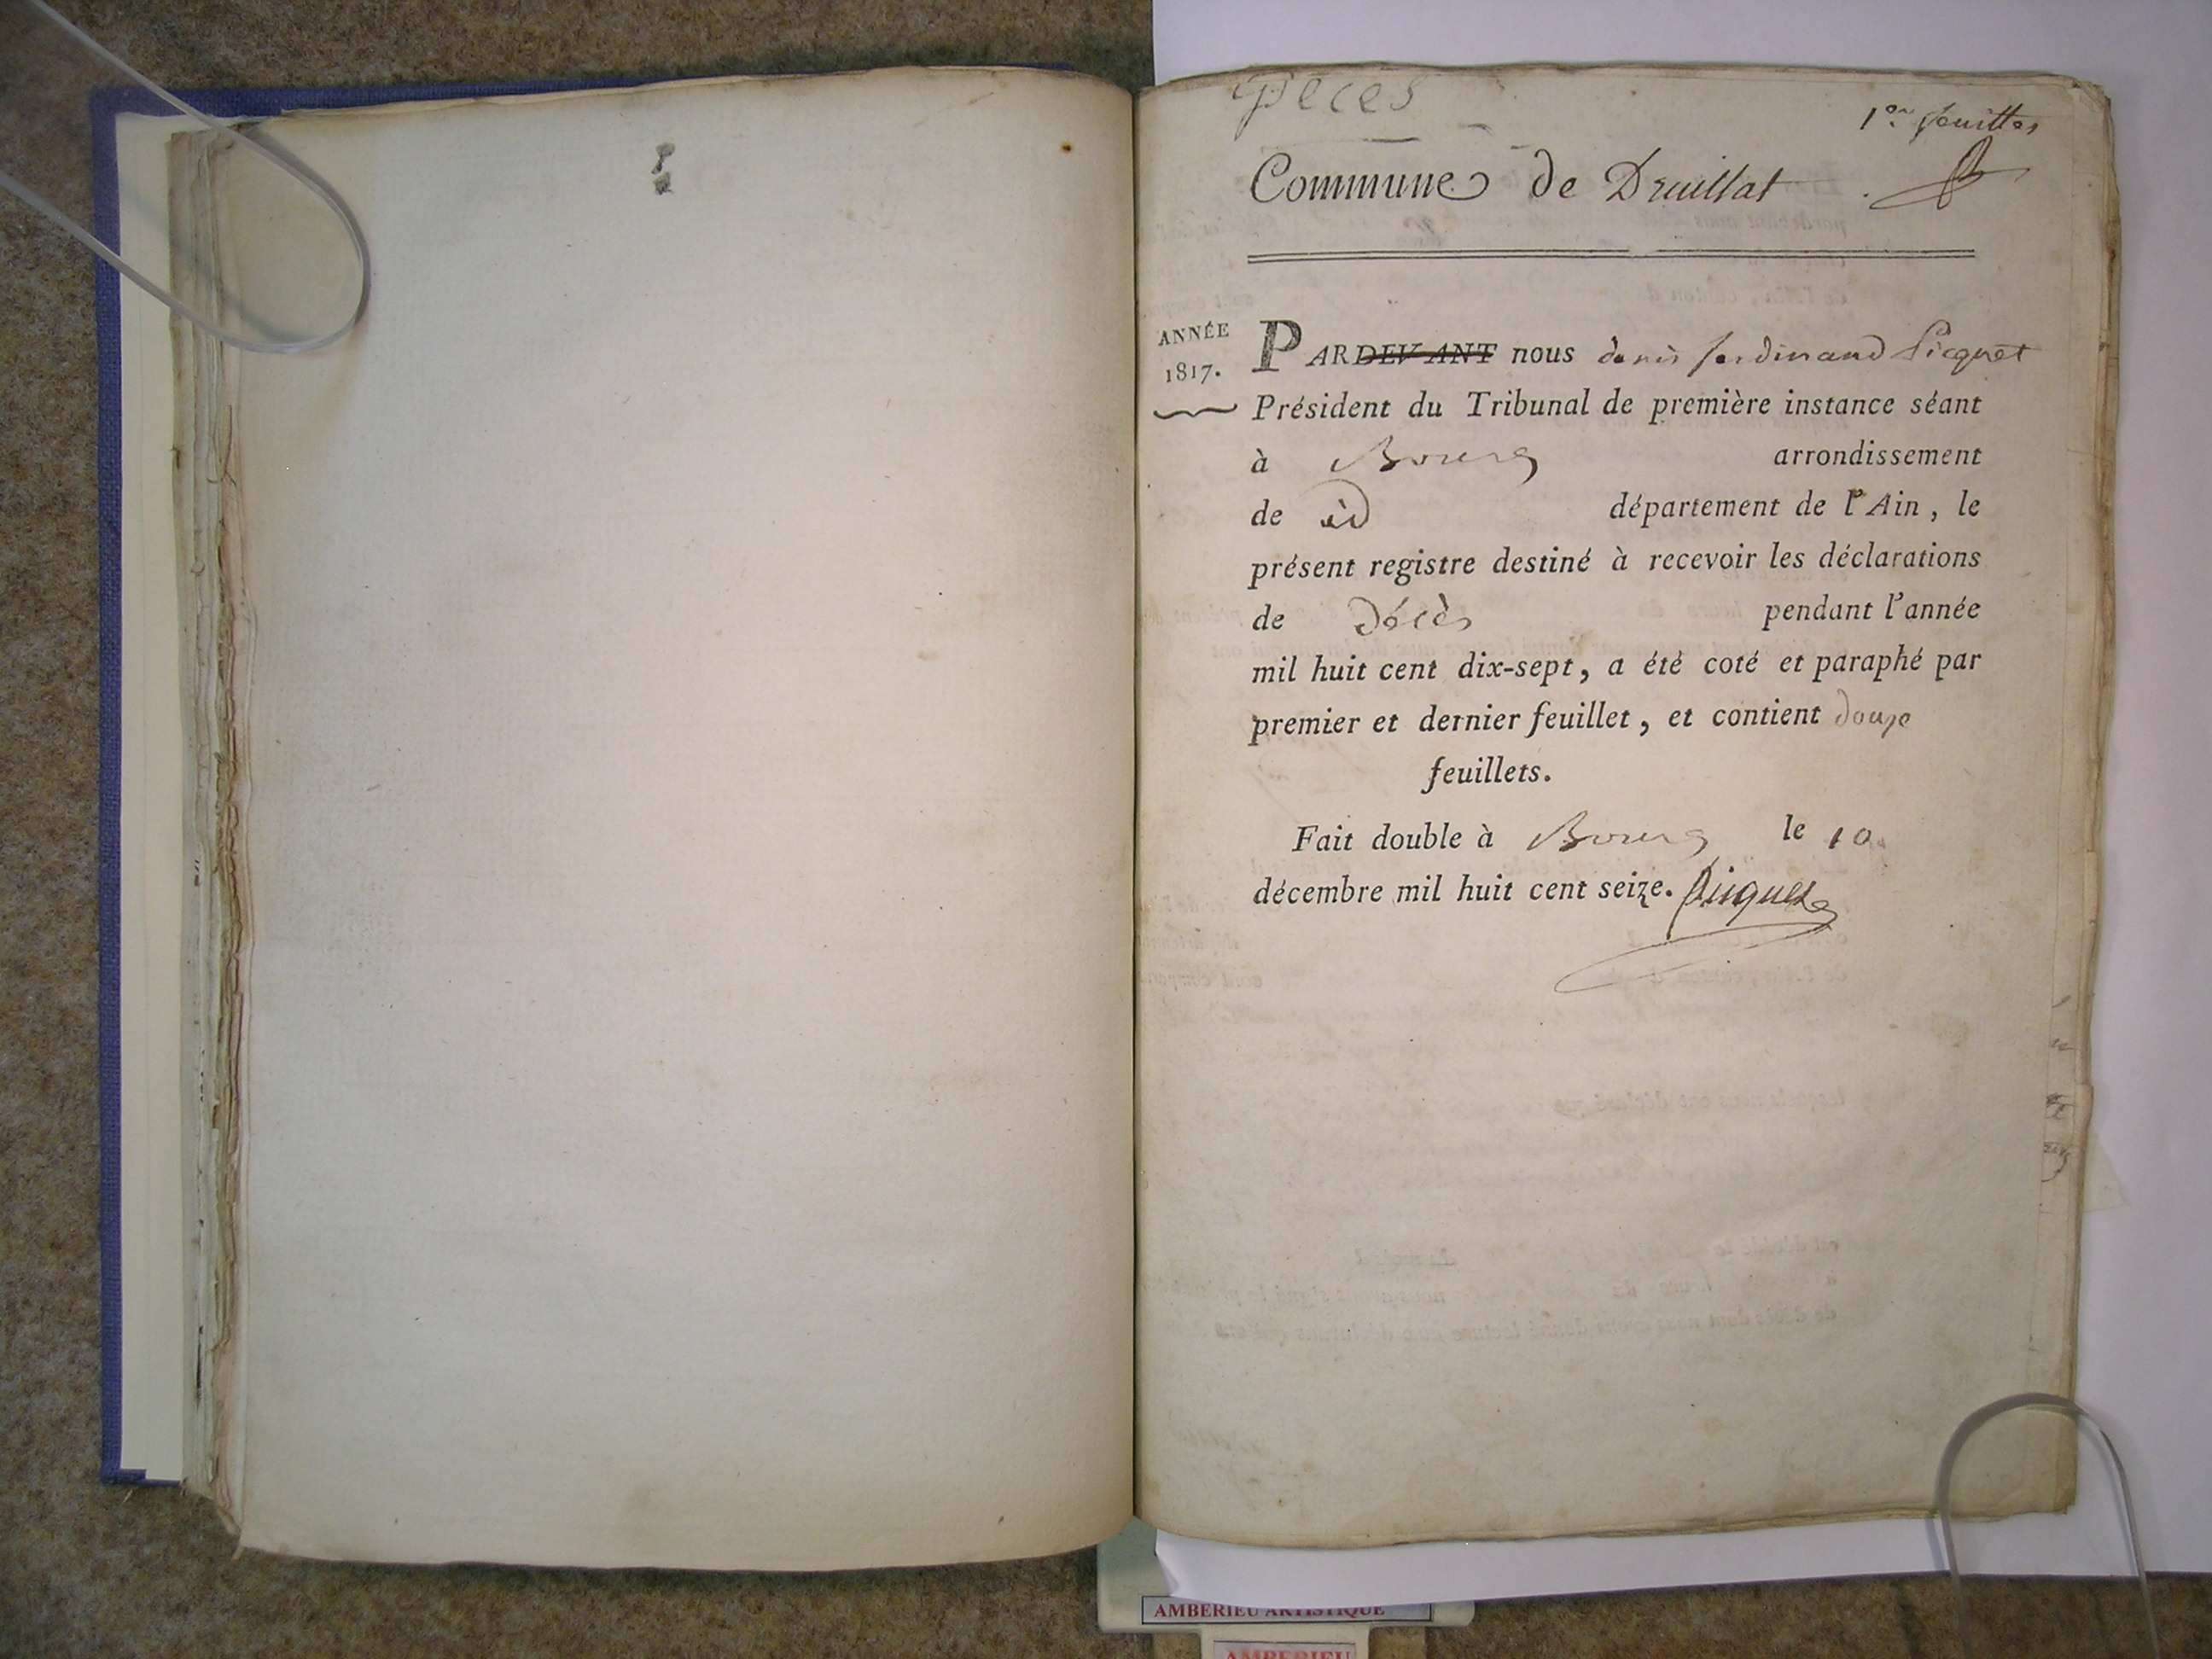 Décès
1er feuillet
Commune de Druillat
ANNÉE
1817.
PARDEVANT nous denis ferdinand Picquet
Président du Tribunal de première instance séant
à Bourg arrondissement
de id département de l'Ain, le
présent registre destiné à recevoir les déclarations
de Décès pendant l'année
mil huit cent dix-sept, a été coté et paraphé par
premier et dernier feuillet, et contient douze
feuillets.
Fait double à Bourg le 10
décembre mil huit cent seize. Picquet
AMBERIEU ARTISTIQUE
AMBERIEU